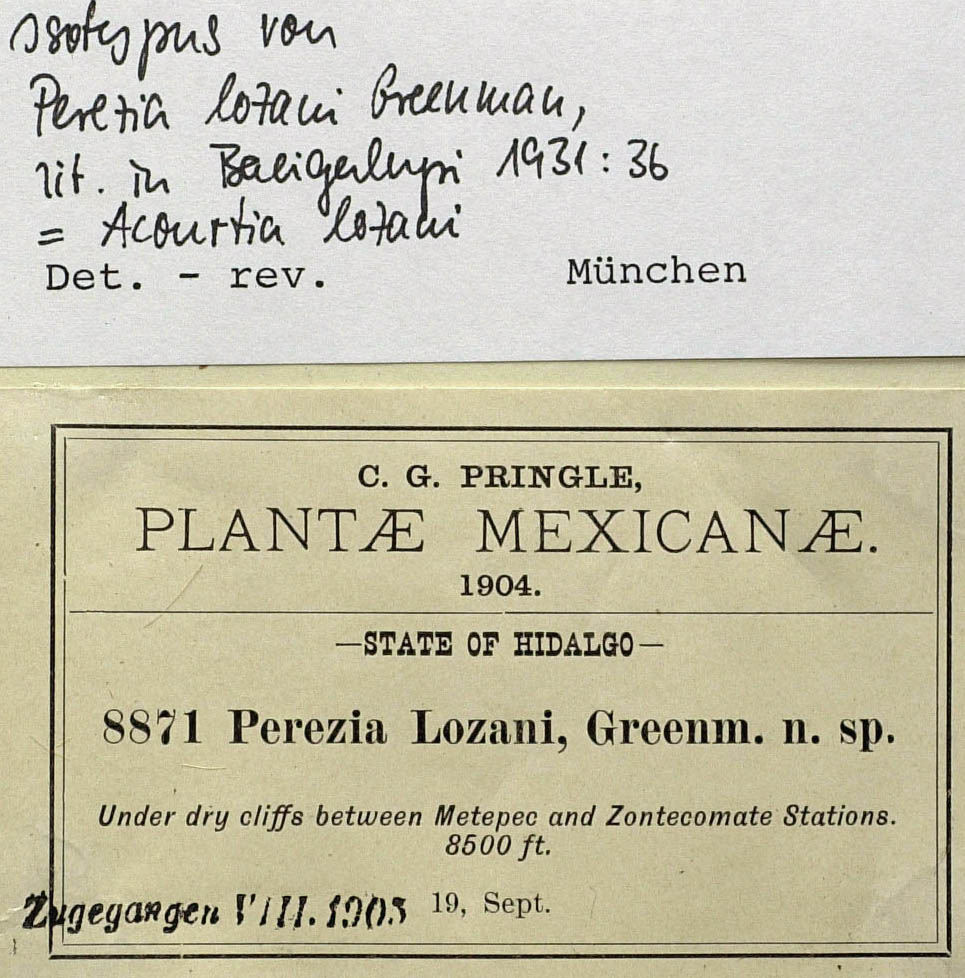 Isotypus von
Perezia lozani Greenman,
cit. in Bacigalupi 1931:36
= Acourtia lozani
Det. - rev. München
C. G. PRINGLE,
PLANTÆ MEXICANÆ.
1904.
—STATE OF HIDALGO—
8871 Perezia Lozani, Greenm. n. sp.
Under dry cliffs between Metepec and Zontecomate Stations.
8500 ft.
Zugegangen VIII. 1905 19, Sept.